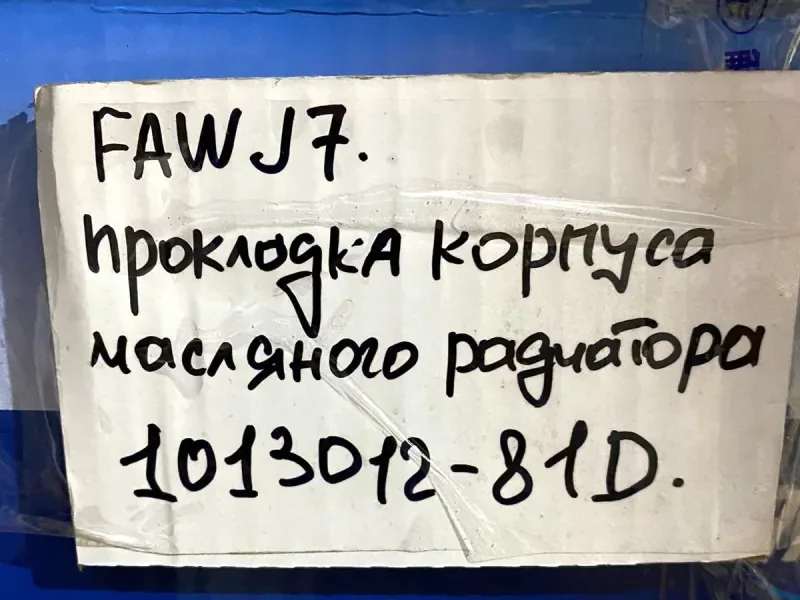 FAW J7.
прокладка корпуса
масляного радиатора
1013012-81D.